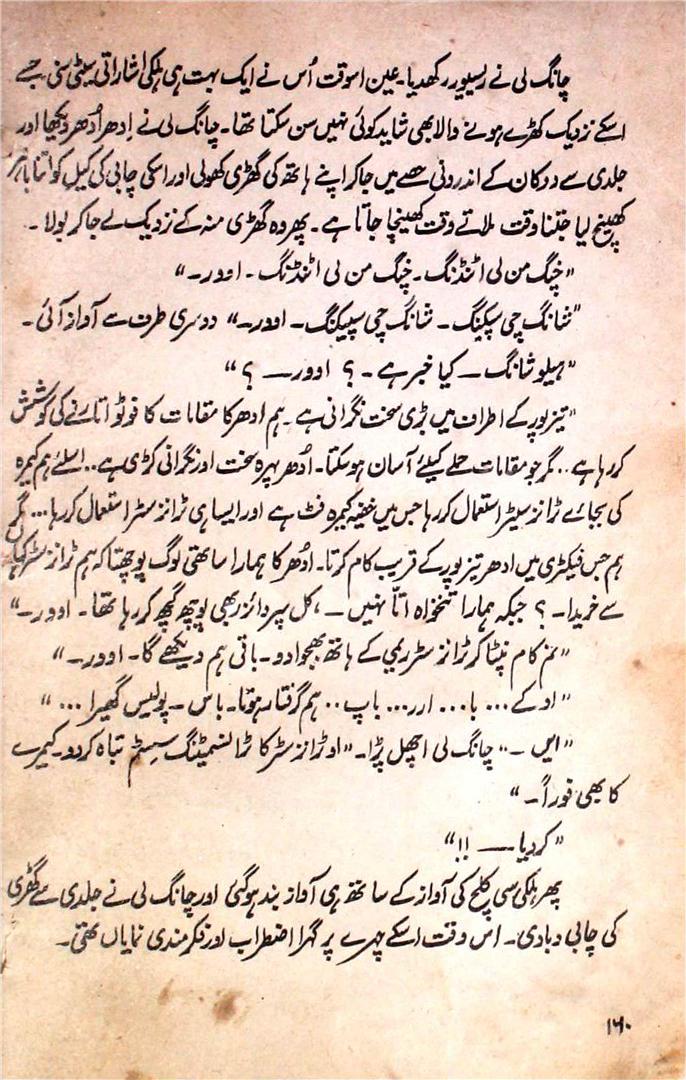 چانگ لی نے ریسیور رکھدیا۔ عین اسوقت اُس نے ایک بہت ہی ہلکی اشاراتی سیٹی سنی جسے
اسکے نزدیک کھڑے ہونے والا بھی شاید کوئی نہیں سن سکتا تھا۔ چانگ لی نے اِدھر اُدھر دیکھا اور
جلدی سے دوکان کے اندرونی حصے میں جاکر اپنے ہاتھ کی گھڑی کھولی اور اسکی چابی کی کیل کو اتنا باہر
کھینچ لیا جتنا وقت ملاتے وقت کھینچا جاتا ہے۔ پھر وہ گھڑی منہ کے نزدیک لے جاکر بولا ۔
"چنگ من لی اٹنڈنگ۔ چنگ من لی اٹنڈنگ ۔ اوور۔"
"شانگ چی سپکینگ ۔ شانگ چی سپیکنگ ۔ اوور۔" دوسری طرف سے آواز آئی ۔
"ہیلو شانگ ۔ کیا خبر ہے ۔ ؟ اوور — ؟"
"تیز پور کے اطراف میں بڑی سخت نگرانی ہے ۔ ہم ادھر کا مقامات کا فوٹو اتارنے کی کوشش
کر رہا ہے .. مگر جو مقامات حملے کیلئے آسان ہو سکتا۔ اُدھر پہرہ سخت اور نگرانی کڑی ہے .. اسلئے ہم کیمرہ
کی بجائے ٹرانزسیٹر استعمال کر رہا جس میں خفیہ کیمرہ فٹ ہے اور ایسا ہی ٹرانزسٹر استعمال کر رہا ... مگر
ہم جس فیکٹری میں ادھر تیز پور کے قریب کام کرتا۔ اُدھر کا ہمارا ساتھی لوگ پوچھتا کہ ہم ٹرانزسٹر کہاں
سے خریدا ۔ ؟ جبکہ ہمارا تنخواہ اتّا نہیں ۔ ، کل سپروائزر بھی پوچھ گچھ کر رہا تھا ۔ اوور ۔"
"تم کام نپٹا کر ٹرانزسٹر رمی کے ہاتھ بھجوا دو ۔ باقی ہم دیکھے گا ۔ اوور ۔"
"اوکے ... با ... ارر ... باپ .. ہم گرفتار ہوتا۔ باس ۔ پولیس گھیرا ..."
"ایں ۔" چانگ لی اچھل پڑا ۔ "او ٹرانزسٹر کا ٹرانسمیٹنگ سسٹم تباہ کر دو۔ کیمرے
کا بھی فوراً ۔"
"کر دیا — !!"
پھر ہلکی سی کلِج کی آواز کے ساتھ ہی آواز بند ہو گئی اور چانگ لی نے جلدی سے گھڑی
کی چابی دبا دی۔ اس وقت اسکے چہرے پر گہرا اضطراب اور فکر مندی نمایاں تھی ۔
۱۶۰